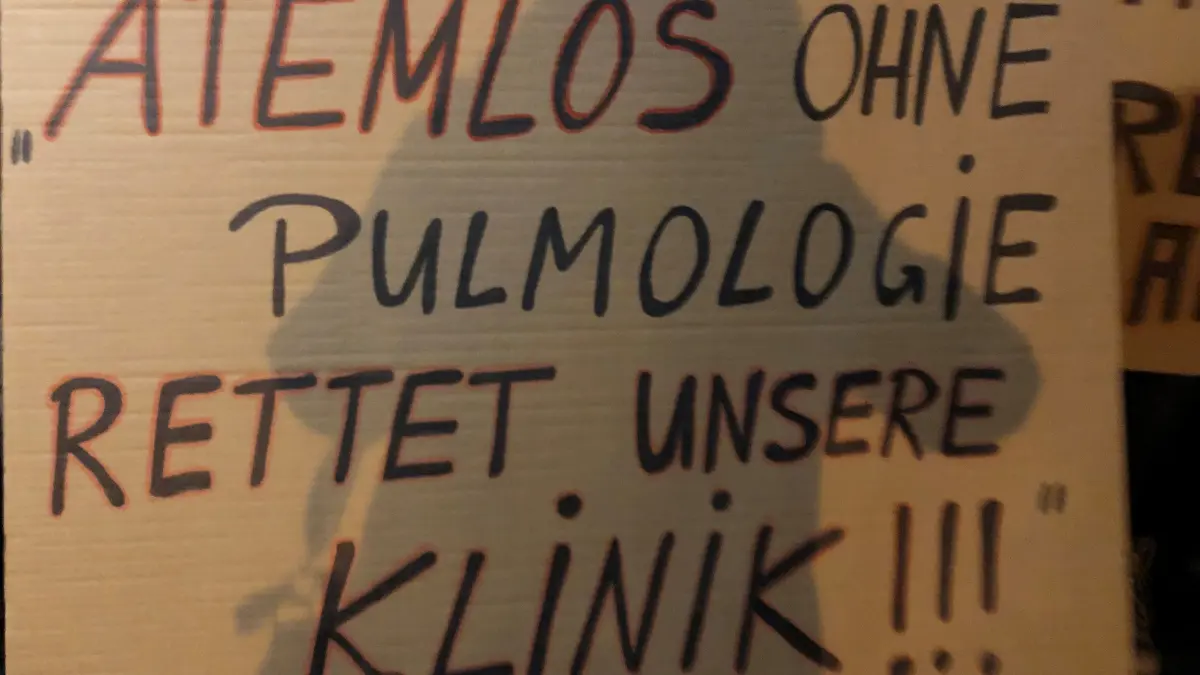 „ATEMLOS OHNE
PULMOLOGiE
RETTET UNSERE
KLiNiK!!!"